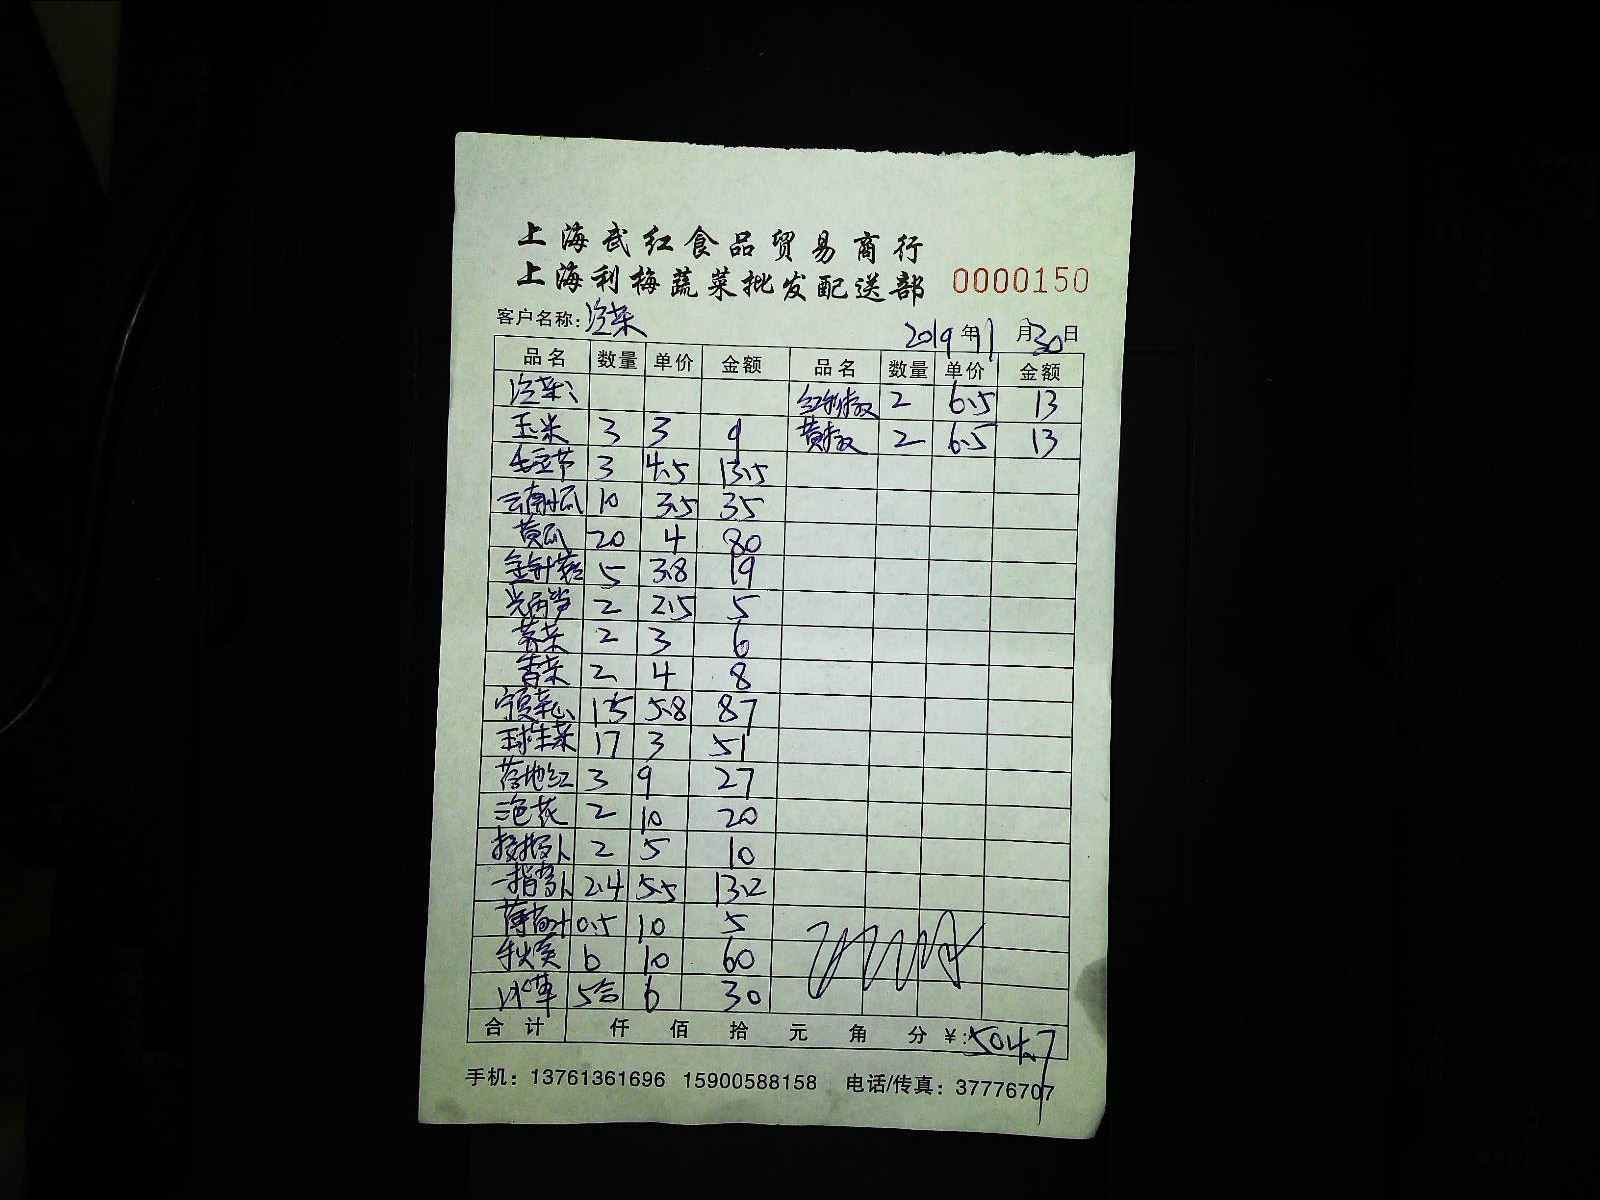 上海武红食品贸易商行
上海利梅蔬菜批发配送部 0000150
客户名称: 冷菜 2019年11月30日
品名 数量 单价 金额 品名 数量 单价 金额
冷菜: 2 6.5 13
玉米 3 3 9 黄椒 2 6.5 13
3 4.5 13.5
云南小瓜 10 3.5 35
黄瓜 20 4 80
金针菇 5 3.8 19
2 2.5 5
2 3 6
香菜 2 4 8
宁夏菜心 15 5.8 87
球生菜 17 3 51
落地红 3 9 27
三色花 2 10 20
2 5 10
2.4 5.5 13.2
薄荷叶 0.5 10 5
秋葵 6 10 60
冰草 5合 6 30
合计 仟 佰 拾 元 角 分 ¥:504.7
手机: 13761361696 15900588158 电话/传真: 37776707